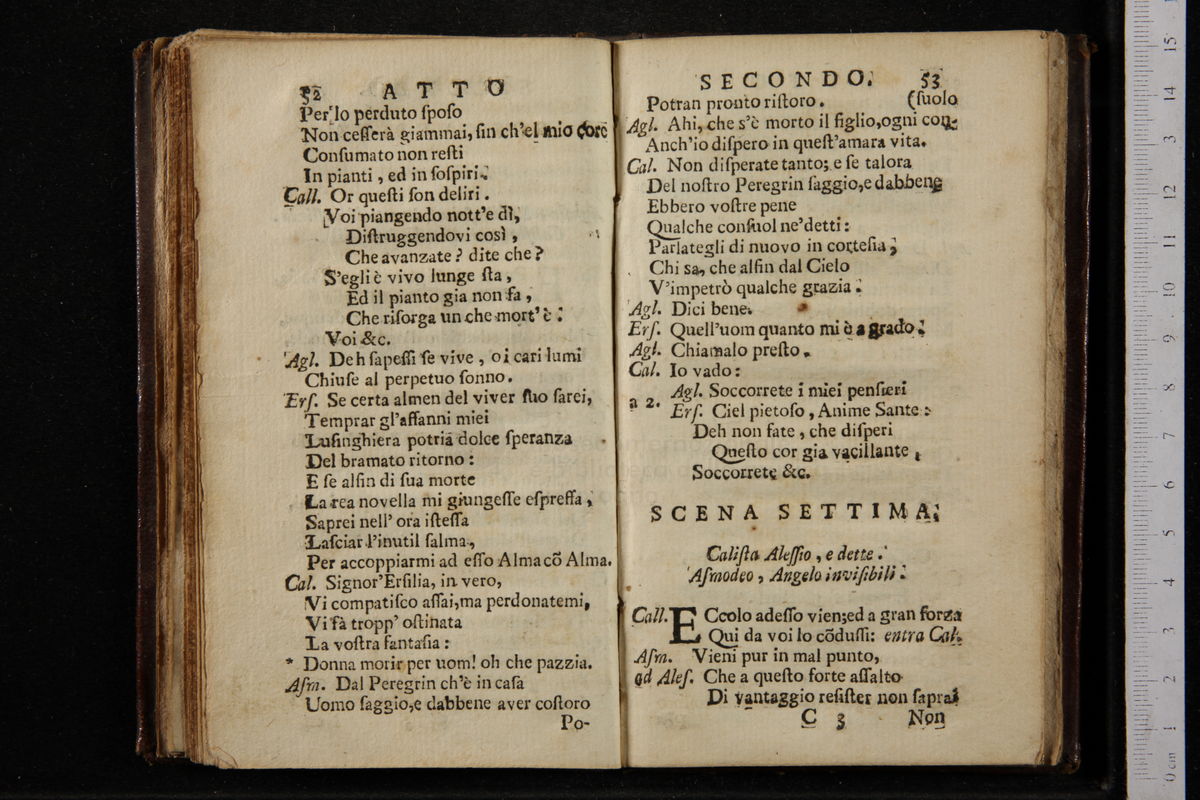 52 ATTO
Per lo perduto ſpoſo
Non ceſſerà giammai, ſin ch'el mio core
Conſumato non reſti
In pianti, ed in ſoſpiri.
Call. Or queſti ſon deliri.
Voi piangendo nott'e dì,
Diſtruggendovi così,
Che avanzate? dite che?
S'egli è vivo lunge ſta,
Ed il pianto gia non fa,
Che riſorga un che mort'è.
Voi &c.
Agl. Deh ſapeſſi ſe vive, o i cari lumi
Chiuſe al perpetuo ſonno.
Erſ. Se certa almen del viver ſuo ſarei,
Temprar gl'affanni miei
Luſinghiera potria dolce ſperanza
Del bramato ritorno:
E ſe alfin di ſua morte
La rea novella mi giungeſſe eſpreſſa,
Saprei nell' ora iſteſſa
Laſciar l'inutil ſalma,
Per accoppiarmi ad eſſo Alma cõ Alma.
Cal. Signor'Erſilia, in vero,
Vi compatiſco aſſai, ma perdonatemi,
Vi fà tropp' oſtinata
La voſtra fantaſia:
* Donna morir per uom! oh che pazzia.
Aſm. Dal Peregrin ch'è in caſa
Uomo ſaggio, e dabbene aver coſtoro
Po-
SECONDO. 53
Potran pronto riſtoro. (ſuolo
Agl. Ahi, che s'è morto il figlio, ogni con-
Anch'io diſpero in queſt'amara vita.
Cal. Non diſperate tanto; e ſe talora
Del noſtro Peregrin ſaggio, e dabbene
Ebbero voſtre pene
Qualche conſuol ne'detti:
Parlategli di nuovo in corteſia;
Chi sa, che alfin dal Cielo
V'impetrò qualche grazia.
Agl. Dici bene.
Erſ. Quell'uom quanto mi è a grado.
Agl. Chiamalo preſto.
Cal. Io vado:
Agl. Soccorrete i miei penſieri
a 2.
Erſ. Ciel pietoſo, Anime Sante:
Deh non fate, che diſperi
Queſto cor gia vacillante,
Soccorrete &c.
SCENA SETTIMA.
Caliſta Aleſſio, e dette.
Aſmodeo, Angelo inviſibili.
Call. ECcolo adeſſo vien; ed a gran forza
Qui da voi lo cõduſſi: entra Cal.
Aſm. Vieni pur in mal punto,
ad Aleſ. Che a queſto forte aſſalto
Di vantaggio reſiſter non ſaprai
C 3 Non